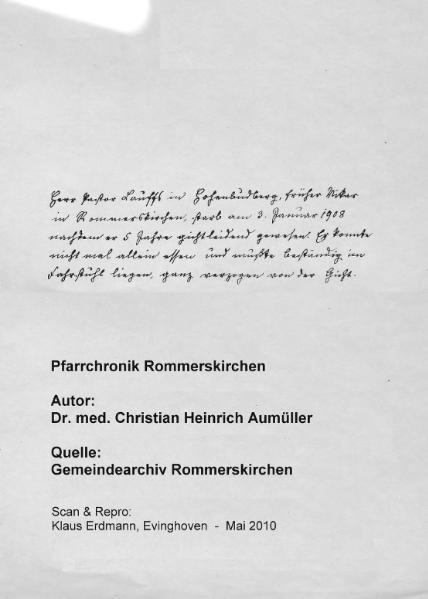 Herr Pastor Lauffs in Hohenbudberg, früher Vikar
in Rommerskirchen, starb am 3. Januar 1908
nachdem er 5 Jahre gichtleidend gewesen. Er konnte
nicht mal allein essen und mußte beständig im
Fahrstuhl liegen, ganz verzogen von der Gicht.
Pfarrchronik Rommerskirchen
Autor:
Dr. med. Christian Heinrich Aumüller
Quelle:
Gemeindearchiv Rommerskirchen
Scan & Repro:
Klaus Erdmann, Evinghoven - Mai 2010